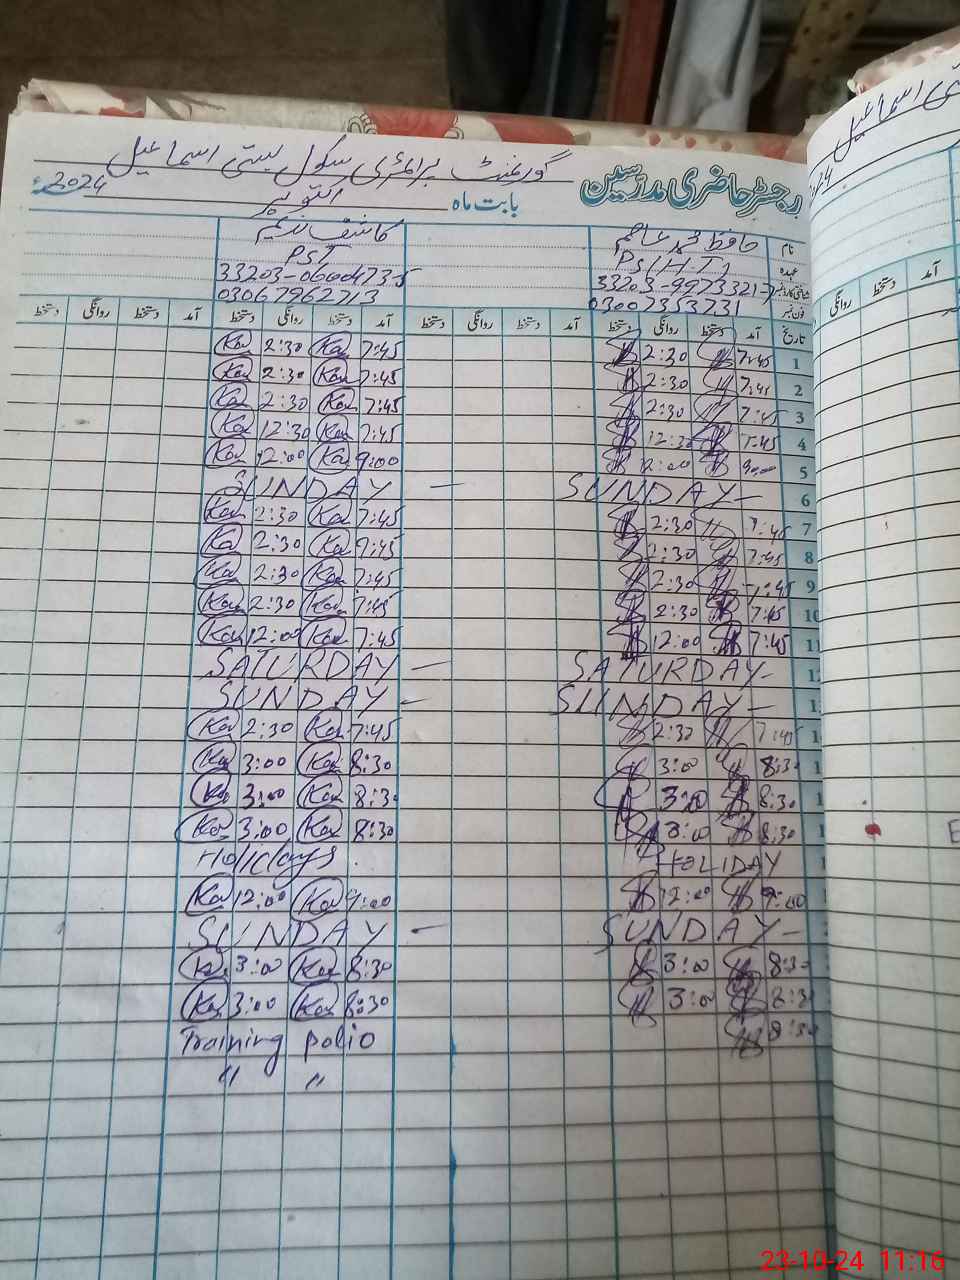 گورنمنٹ پرائمری سکول بستی اسماعیل
رجسٹر حاضری مدرسین
بابت ماہ اکتوبر 2024ء
نام حافظ محمد عاصم کاشف ندیم
عہدہ PST (H.T) PST
شناختی کارڈ نمبر 33203-9973321-7 33203-0600473-5
فون نمبر 03007353731 03067962713
تاریخ آمد دستخط روانگی دستخط آمد دستخط روانگی دستخط آمد دستخط روانگی دستخط آمد دستخط روانگی دستخط
1 7:45 2:30 7:45 Kas 2:30 Kas
2 7:45 2:30 7:45 Kas 2:30 Kas
3 7:45 2:30 7:45 Kas 2:30 Kas
4 7:45 12:30 7:45 Kas 12:30 Kas
5 9:00 12:00 9:00 Kas 12:00 Kas
6 SUNDAY – SUNDAY –
7 7:45 2:30 7:45 Kas 2:30 Kas
8 7:45 2:30 7:45 Kas 2:30 Kas
9 7:45 2:30 7:45 Kas 2:30 Kas
10 7:45 2:30 7:45 Kas 2:30 Kas
11 7:45 12:00 7:45 Kas 12:00 Kas
12 SATURDAY – SATURDAY –
SUNDAY – SUNDAY –
7:45 2:30 7:45 Kas 2:30 Kas
8:30 3:00 8:30 Kas 3:00 Kas
8:30 3:00 8:30 Kas 3:00 Kas
8:30 3:00 8:30 Kas 3:00 Kas
HOLIDAY Holidays
9:00 12:00 9:00 Kas 12:00 Kas
SUNDAY – SUNDAY –
8:30 3:00 8:30 Kas 3:00 Kas
8:30 3:00 8:30 Kas 3:00 Kas
8:30 Training polio
" "
آمد دستخط روانگی
23-10-24 11:16